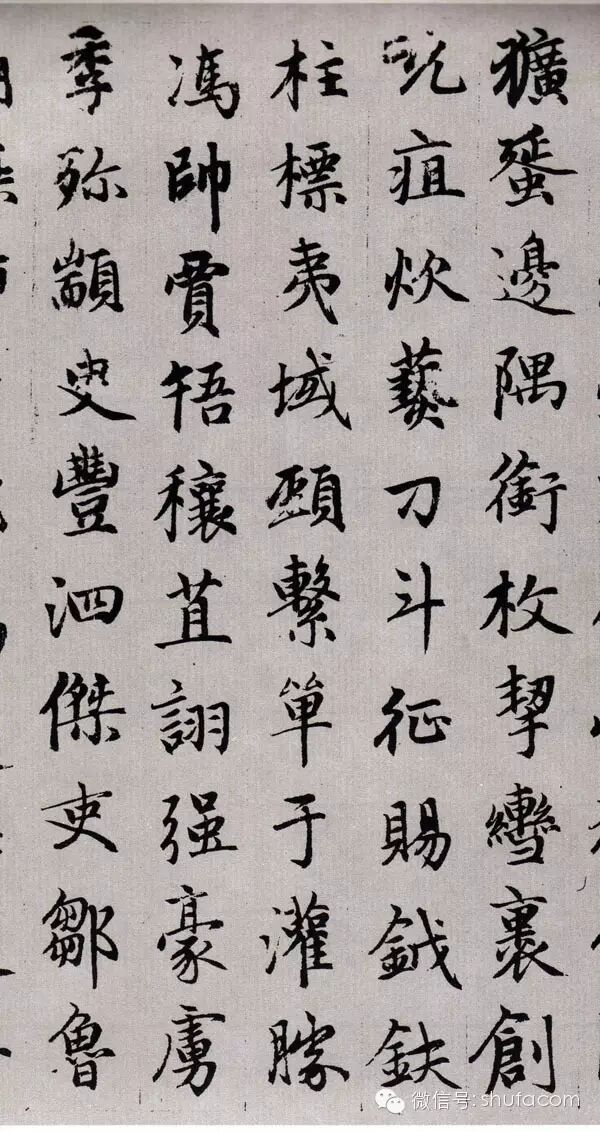 獷蜑邊隅銜枚挈轡裹創
吮疽炊藝刁斗征賜鉞鈌
柱標夷域頸繫單于灌滕
馮帥賈牾穰苴詡强豪虜
季殄顓叟豐泗傑吏鄒魯
微信号: shufacom